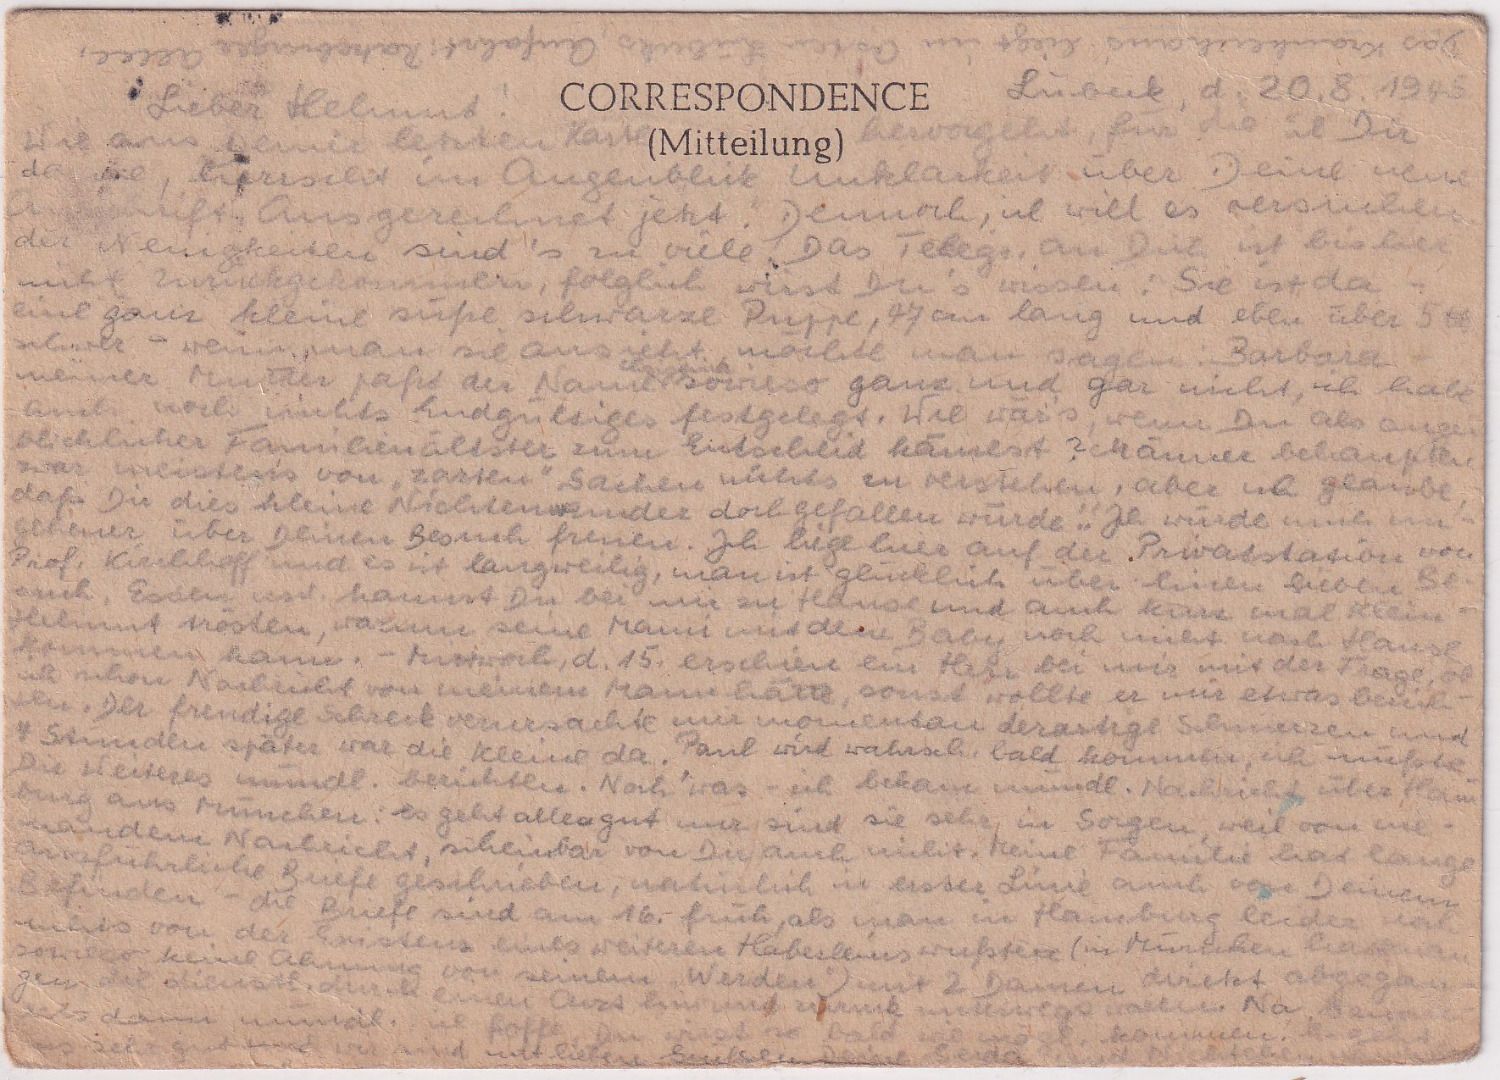 Das Krankenhaus liegt im Osten Lübecks, Anfahrt: Ratzeburger Allee,
CORRESPONDENCE
(Mitteilung)
Lübeck, d. 20.8.1945
Lieber Helmut!
Wie aus Deiner letzten Karte hervorgeht, für die ich Dir
danke, herrscht im Augenblick Unklarheit über Deine neue
Anschrift. Ausgerechnet jetzt! Dennoch, ich will es versuchen,
der Neuigkeiten sind's zu viele! Das Telegr. an Dich ist bisher
nicht zurückgekommen, folglich wirst Du's wissen: Sie ist da -
eine ganz kleine süße schwarze Puppe, 47 cm lang und eben über 5 tt
schwer - wenn man sie ansieht, möchte man sagen Barbara -
meiner Mutter paßt der Name sowieso ganz und gar nicht, ich habe
auch noch nichts Endgültiges festgelegt. Wie wär's, wenn Du als augen-
blicklicher Familienältster zum Entscheid kämest? Männer behaupten
zwar meistens von "zarten" Sachen nichts zu verstehen, aber ich glaube,
daß Dir dies kleine Nichtenwunder doch gefallen würde!! Ich würde mich un-
geheuer über Deinen Besuch freuen. Ich liege hier auf der Privatstation von
Prof. Kirchhoff und es ist langweilig, man ist glücklich über einen lieben Be-
such. Essen usw. kannst Du bei mir zu Hause und auch kurz mal Klein-
Helmut trösten, warum seine Mami mit dem Baby noch nicht nach Hause
kommen kann. - Mittwoch, d. 15. erschien ein Herr bei mir mit der Frage, ob
ich schon Nachricht von meinem Mann hätte, sonst wollte er mir etwas berich-
ten. Der freudige Schreck verursachte mir momentan derartige Schmerzen und
4 Stunden später war die Kleine da. Paul wird wahrsch. bald kommen, ich müßte
Dir Weiteres mündl. berichten. Noch 'was - ich bekam mündl. Nachricht über Ham-
burg aus München: es geht alles gut nur sind sie sehr in Sorgen, weil von nie-
mandem Nachricht, scheinbar von Dir auch nicht. Meine Familie hat lange
ausführliche Briefe geschrieben, natürlich in erster Linie auch von Deinem
Befinden - die Briefe sind am 16. früh, als man in Hamburg leider noch
nichts von der Existenz eines weiteren Haberleins wußte (in München hat man
sowieso keine Ahnung von seinem "Werden") mit 2 Damen direkt abgegan-
gen, die dienstl. durch einen Arzt hin und zurück unterwegs waren. Na,
dann mündl. ich hoffe, Du wirst so bald wie mögl. kommen.
sehr gut und wir sind mit lieben Grüßen Deine Gerda und